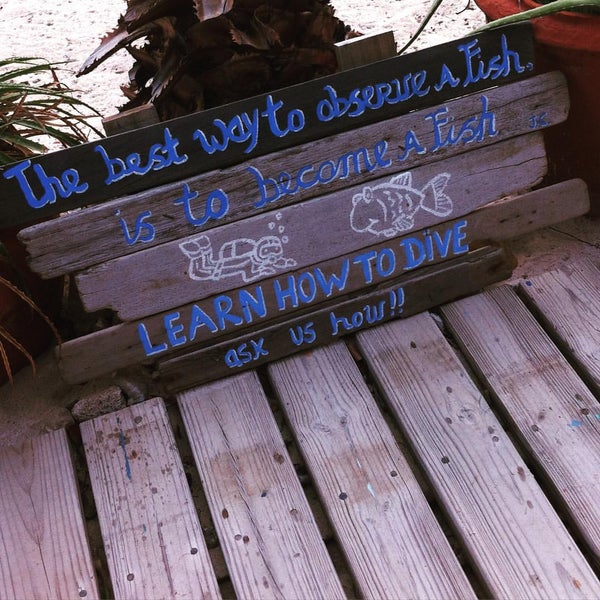 The best way to observe A Fish,
is to become A Fish
LEARN HOW TO DIVE
ask us how!!